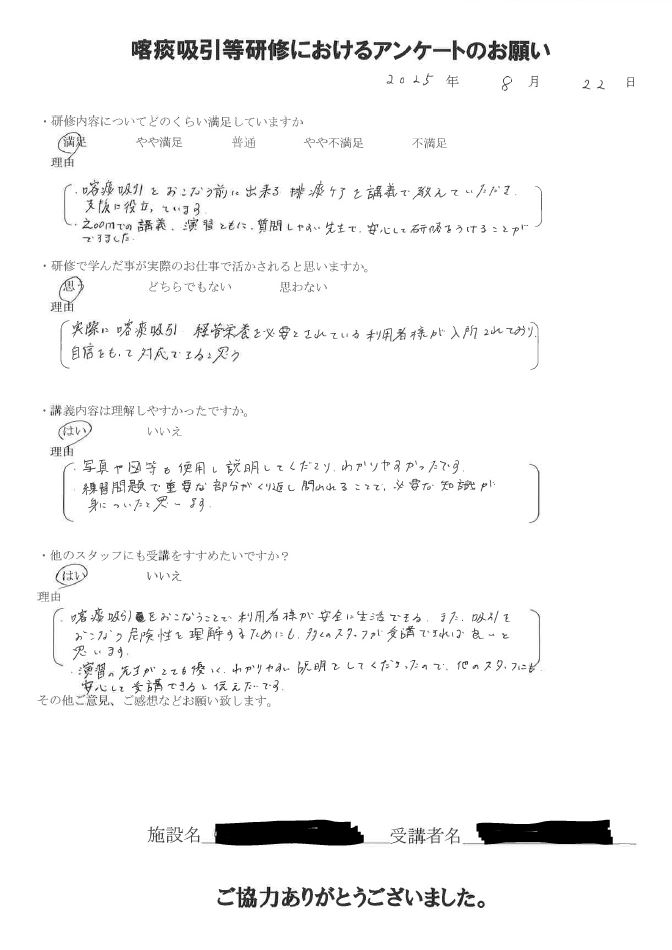 喀痰吸引等研修におけるアンケートのお願い
2025 年 8 月 22 日
・研修内容についてどのくらい満足していますか
満足 やや満足 普通 やや不満足 不満足
理由
・喀痰吸引をおこなう前に出来る排痰ケアを講義で教えていただき、
支援に役立っています。
・Zoomでの講義、演習ともに、質問しやすい先生で、安心して研修をうけることが
できました。
・研修で学んだ事が実際のお仕事で活かされると思いますか。
思う どちらでもない 思わない
理由
実際に喀痰吸引 経管栄養を必要とされている利用者様が入所されており、
自信をもって対応できると思う
・講義内容は理解しやすかったですか。
はい いいえ
理由
・写真や図等も使用し説明してくださり、わかりやすかったです。
・練習問題で重要な部分がくり返し問われることで、必要な知識が
身についたと思います。
・他のスタッフにも受講をすすめたいですか？
はい いいえ
理由
・喀痰吸引をおこなうことで利用者様が安全に生活できる。また、吸引を
おこなう危険性を理解するためにも、多くのスタッフが受講できれば良いと
思います。
・演習の先生がとても優しく、わかりやすい説明をしてくださったので、他のスタッフにも
安心して受講できると伝えたいです。
その他ご意見、ご感想などお願い致します。
施設名 受講者名
ご協力ありがとうございました。